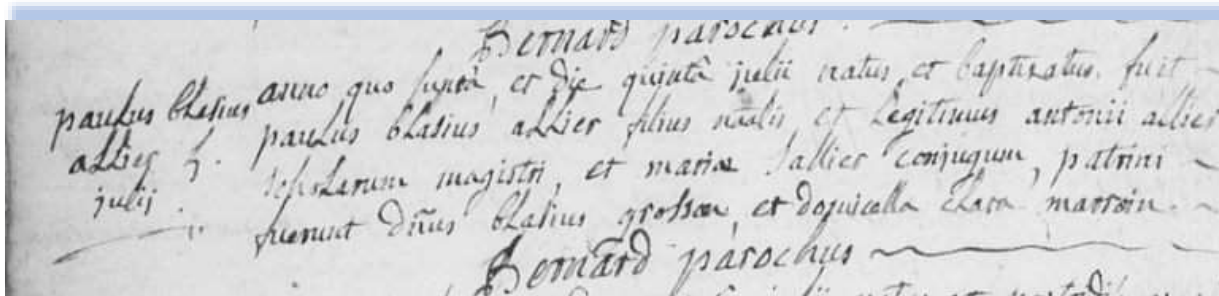 Bernard parochus.
paulus blasius
allier 5.
julii
anno quo supra, et die quintâ julii natus, et baptizatus fuit
paulus blasius allier filius nãlis, et legitimus antonii allier
scholarum magistri, et mariæ Sallier conjugum, patrini
fuerunt dñus blasius grossan, et domicella clara marroin.
Bernard parochus